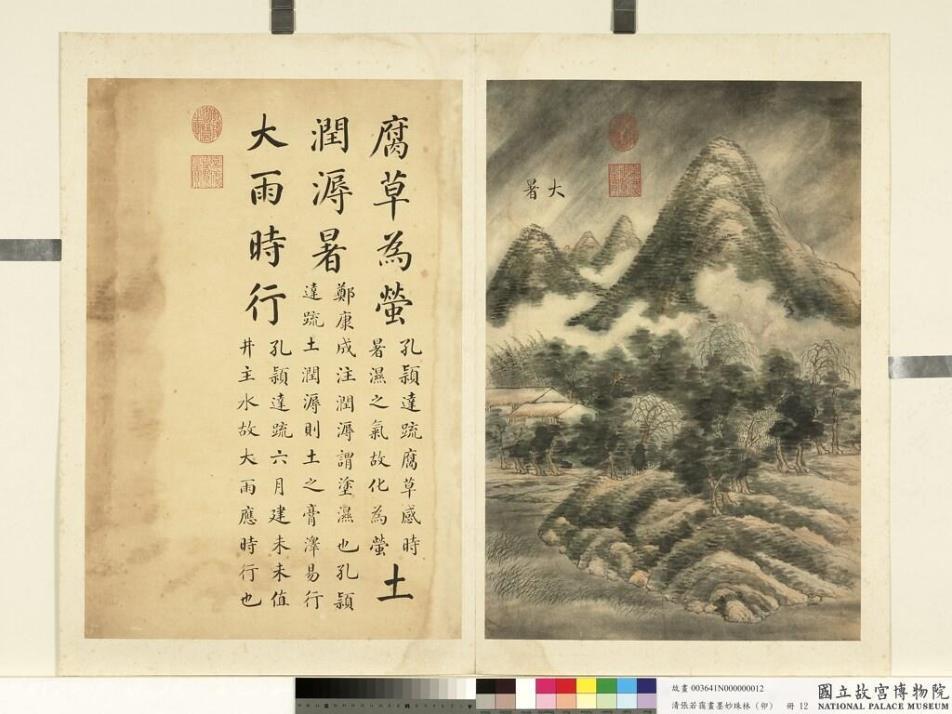 大暑
腐草為螢
孔頴達疏腐草感時
暑濕之氣故化為螢
土
潤溽暑
鄭康成注潤溽謂塗濕也孔頴
達疏土潤溽則土之膏澤易行
大雨時行
孔頴達疏六月建未未值
井主水故大雨應時行也
故畫 003641N000000012
清張若靄畫墨妙珠林（卯） 冊 12
國立故宮博物院
NATIONAL PALACE MUSEUM